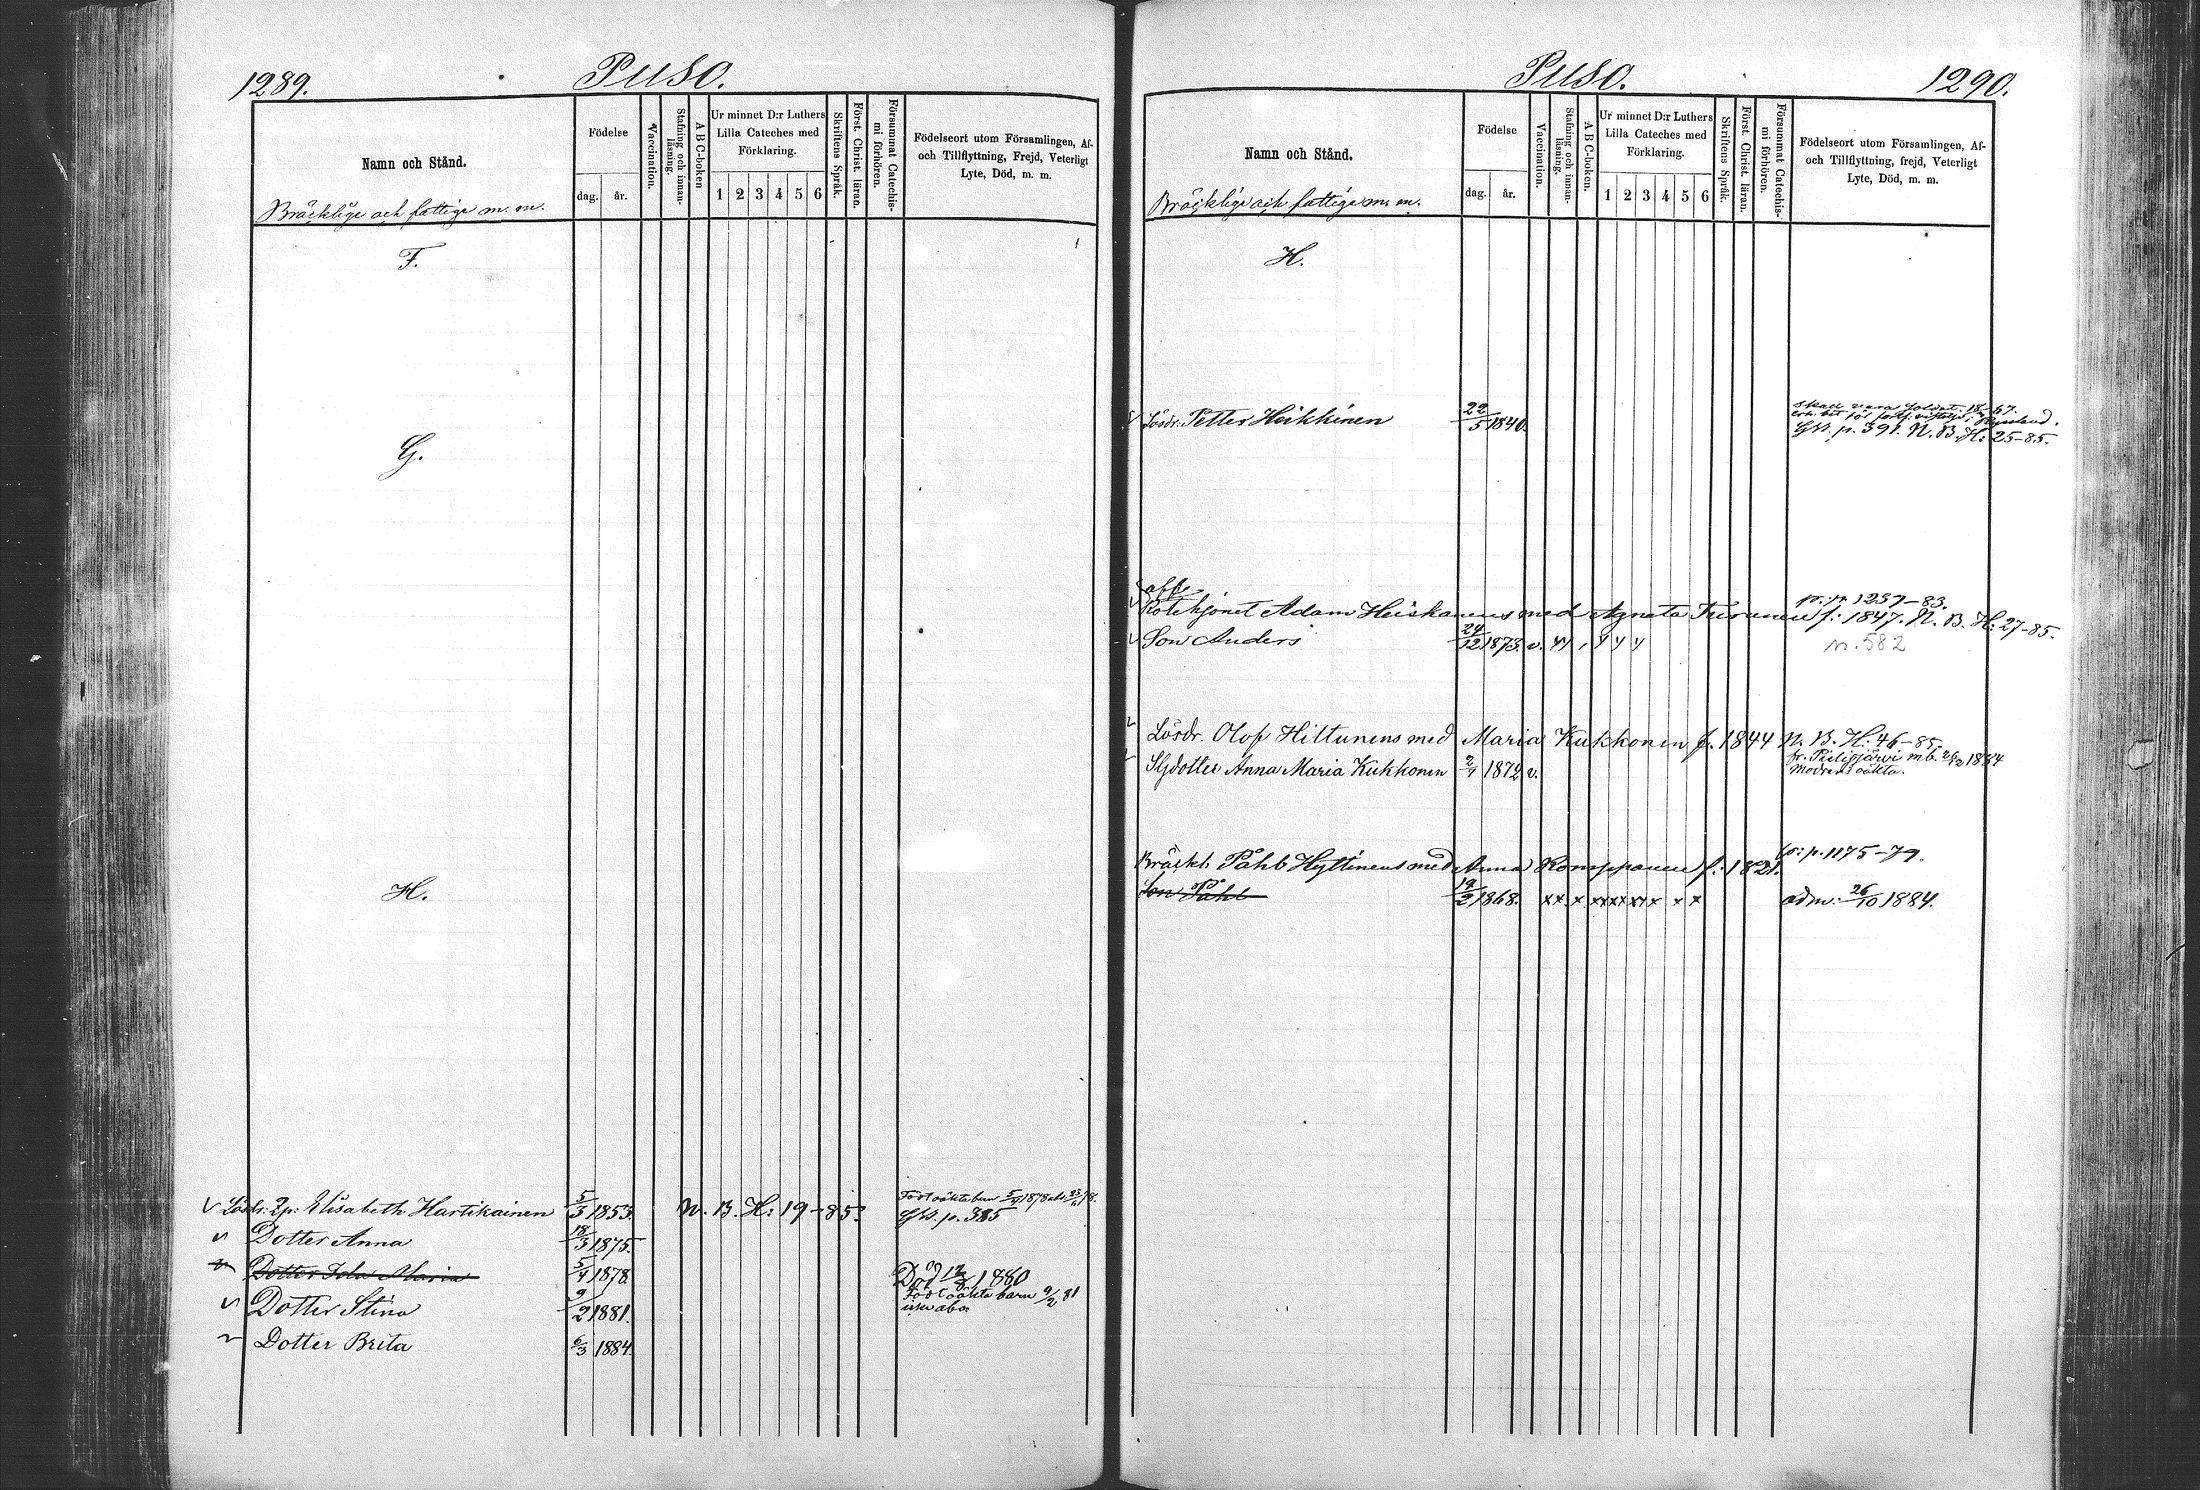 1289.
Puso.
Namn och Stånd.
Bräcklige och fattige m. m.
Födelse
dag.
år.
Vaccination.
Stafning och innan-
läsning.
A B C-boken
Ur minnet D:r Luthers
Lilla Cateches med
Förklaring.
1 2 3 4 5 6
Skriftens Språk.
Först. Christ. läran.
Försummat Catechis-
mi förhören.
Födelseort utom Församlingen, Af-
och Tillflyttning, Frejd, Veterligt
Lyte, Död, m. m.
F.
G.
H.
Lösdr: Elisabeth Hartikainen 5/3 1853. N. B. H: 19-85. Född oäkta barn 5/4 1878
p. 385
Dotter Anna 18/3 1875.
Dotter Ida Maria 5/4 1878. Död 12/8 1880
Dotter Stina 9/2 1881. Född oäkta barn 9/2 81
Dotter Brita 6/3 1884.
Puso.
1290.
Namn och Stånd.
Bräcklige och fattige m. m.
Födelse
dag.
år.
Vaccination.
Stafning och innan-
läsning.
A B C-boken.
Ur minnet D:r Luthers
Lilla Cateches med
Förklaring.
1 2 3 4 5 6
Skriftens Språk.
Först. Christ. läran.
Försummat Catechis-
mi förhören.
Födelseort utom Församlingen, Af-
och Tillflyttning, frejd, Veterligt
Lyte, Död, m. m.
H.
Lösdr: Petter Heikkinen 22/5 1840. Skall vara Soldat
Ryssland.
p. 391. N. B. H: 25-85.
p. 1237-83.
Rotehjonet Adam Heiskanens med Agneta Turunen f: 1847. N. B. H: 27-85.
Son Anders 24/12 1873. v.
n. 582
Lösdr. Olof Hiltunens med Maria Kukkonen f. 1844 N. B. H: 46-85.
Stjdotter Anna Maria Kukkonen 2/1 1872 v. fr. Pielisjärvi m.b. 1884
Modrens oäkta.
p. 1175-79.
Bräckl: Påhl Hyttinens med Anna Komppanen f: 1821.
Son Påhl 19/2 1868. xx x xxxxxx x x adm: 26/10 1884.